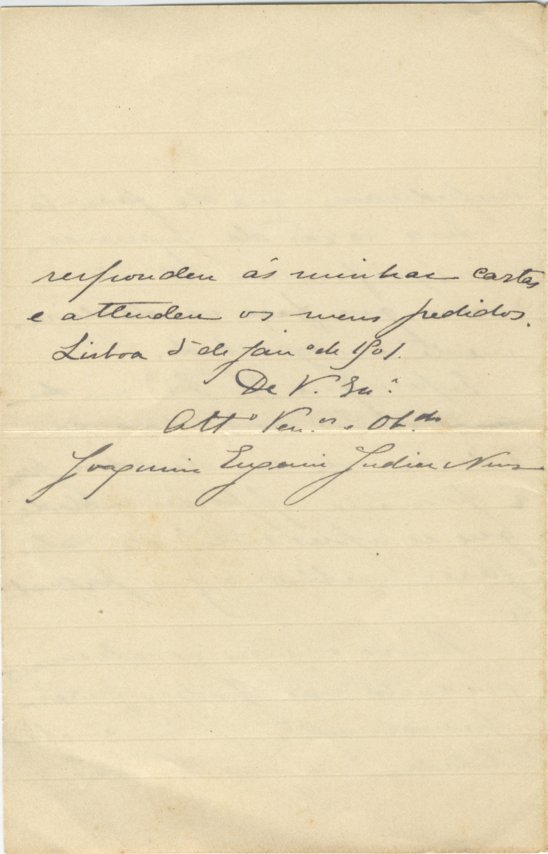 responden ás minhas cartas
e attenden os meus pedidos.
Lisboa 5 de Jan.o de 1901.
De V. Ex.a
Att.o Ven.or e Ob.do
Joaquim Eugenio Judice